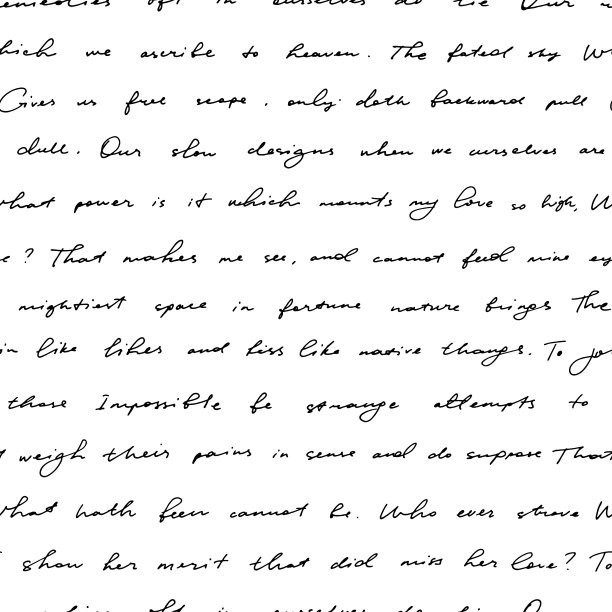 oft in ourselves do lie Our
which we ascribe to heaven. The fated sky
Gives us free scope, only doth backward pull
dull. Our slow designs when we ourselves are
what power is it which mounts my love so high,
? That makes me see, and cannot feed mine ey
mightiest space in fortune nature brings The
in like likes and kiss like native things. To jo
those Impossible be strange attempts to
weigh their pains in sense and do suppose That
what hath been cannot be. Who ever strove
show her merit that did miss her love? To
oft in ourselves do lie